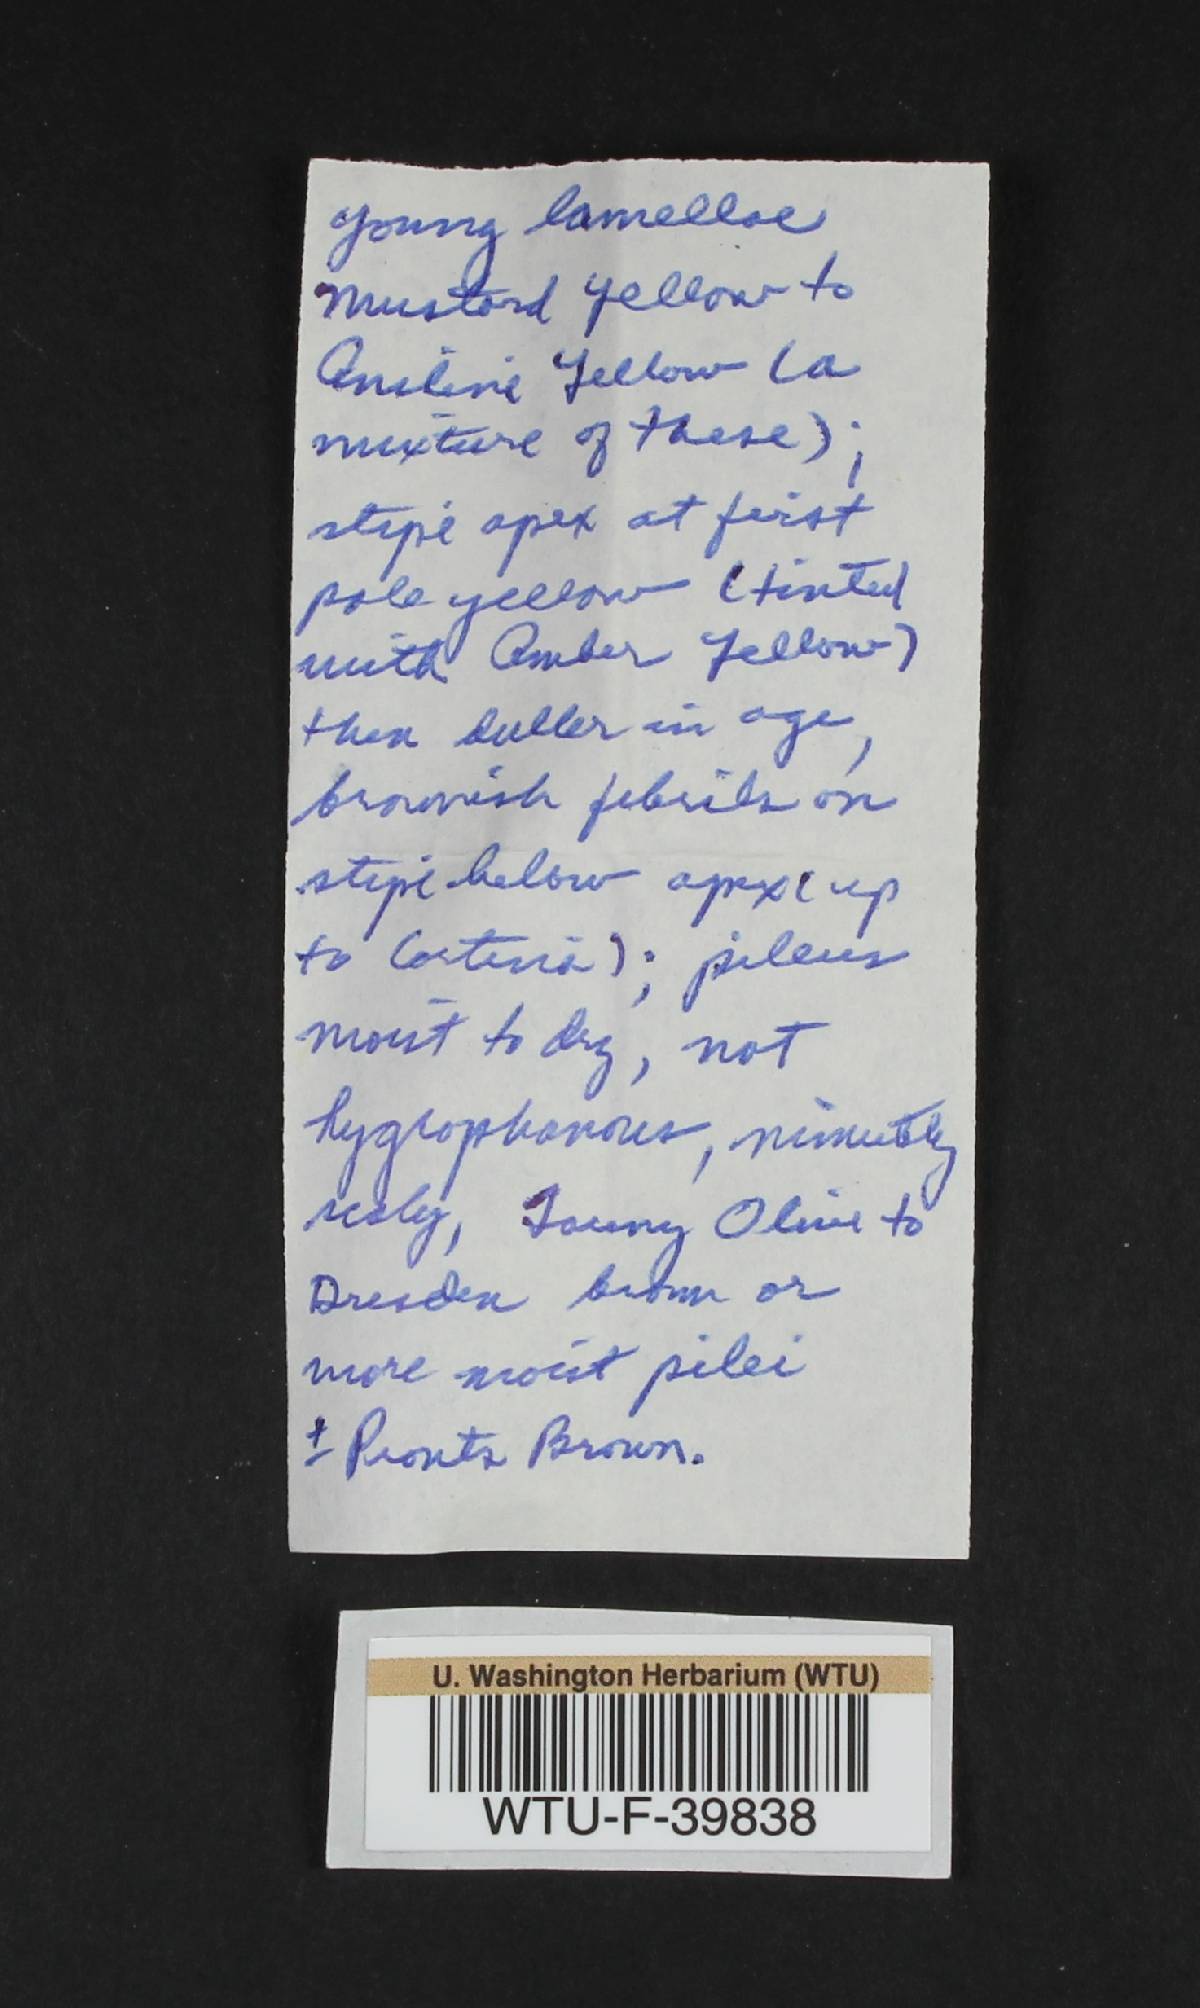 young lamellae
Mustard Yellow to
Aniline Yellow (a
mixture of these);
stipe apex at first
pale yellow (tinted
with Amber Yellow)
then duller in age,
brownish fibrils on
stipe below apex (up
to Cortina); pileus
moist to dry, not
hygrophanous, minutely
scaly, Tawny Olive to
Dresden brown or
more moist pilei
± Prouts Brown.
U. Washington Herbarium (WTU)
WTU-F-39838